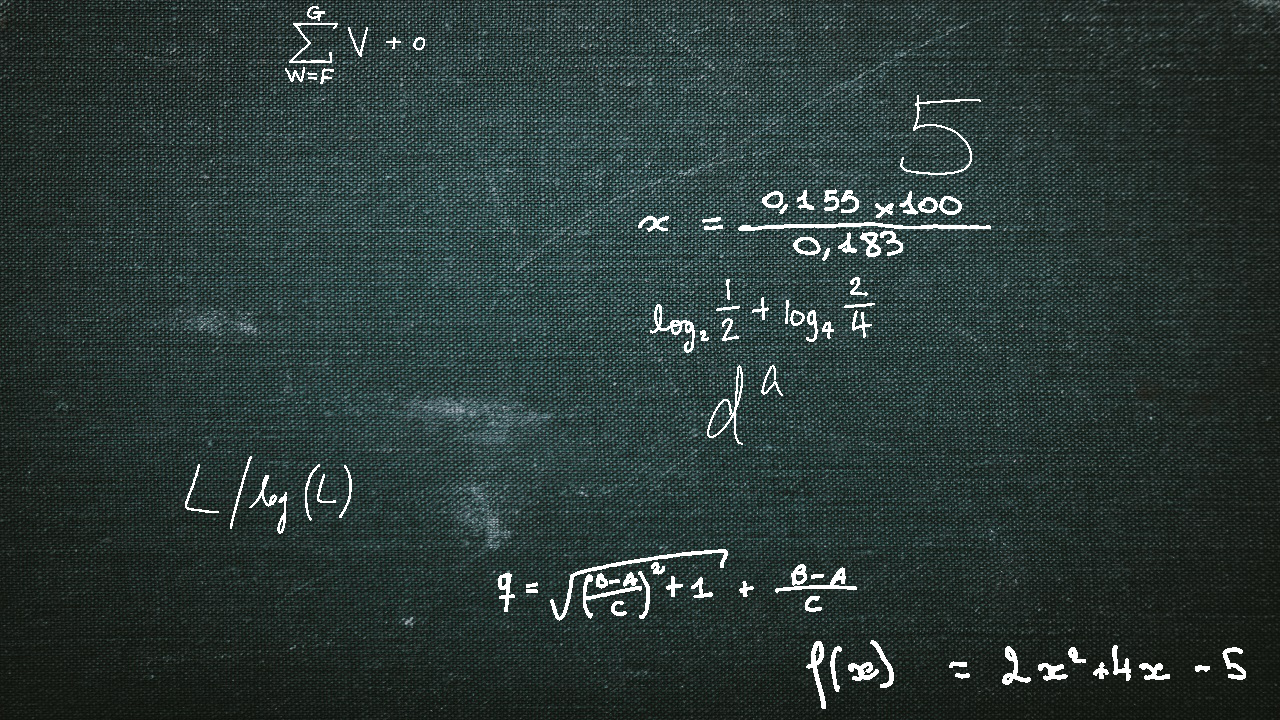 \sum_{W=F}^{G} V + o
5
x = \frac{0,155 \times 100}{0,183}
\log_2 \frac{1}{2} + \log_4 \frac{2}{4}
d^a
L / \log (L)
q = \sqrt{\left(\frac{B-A}{C}\right)^2 + 1} + \frac{B-A}{C}
f(x) = 2x^2 + 4x - 5